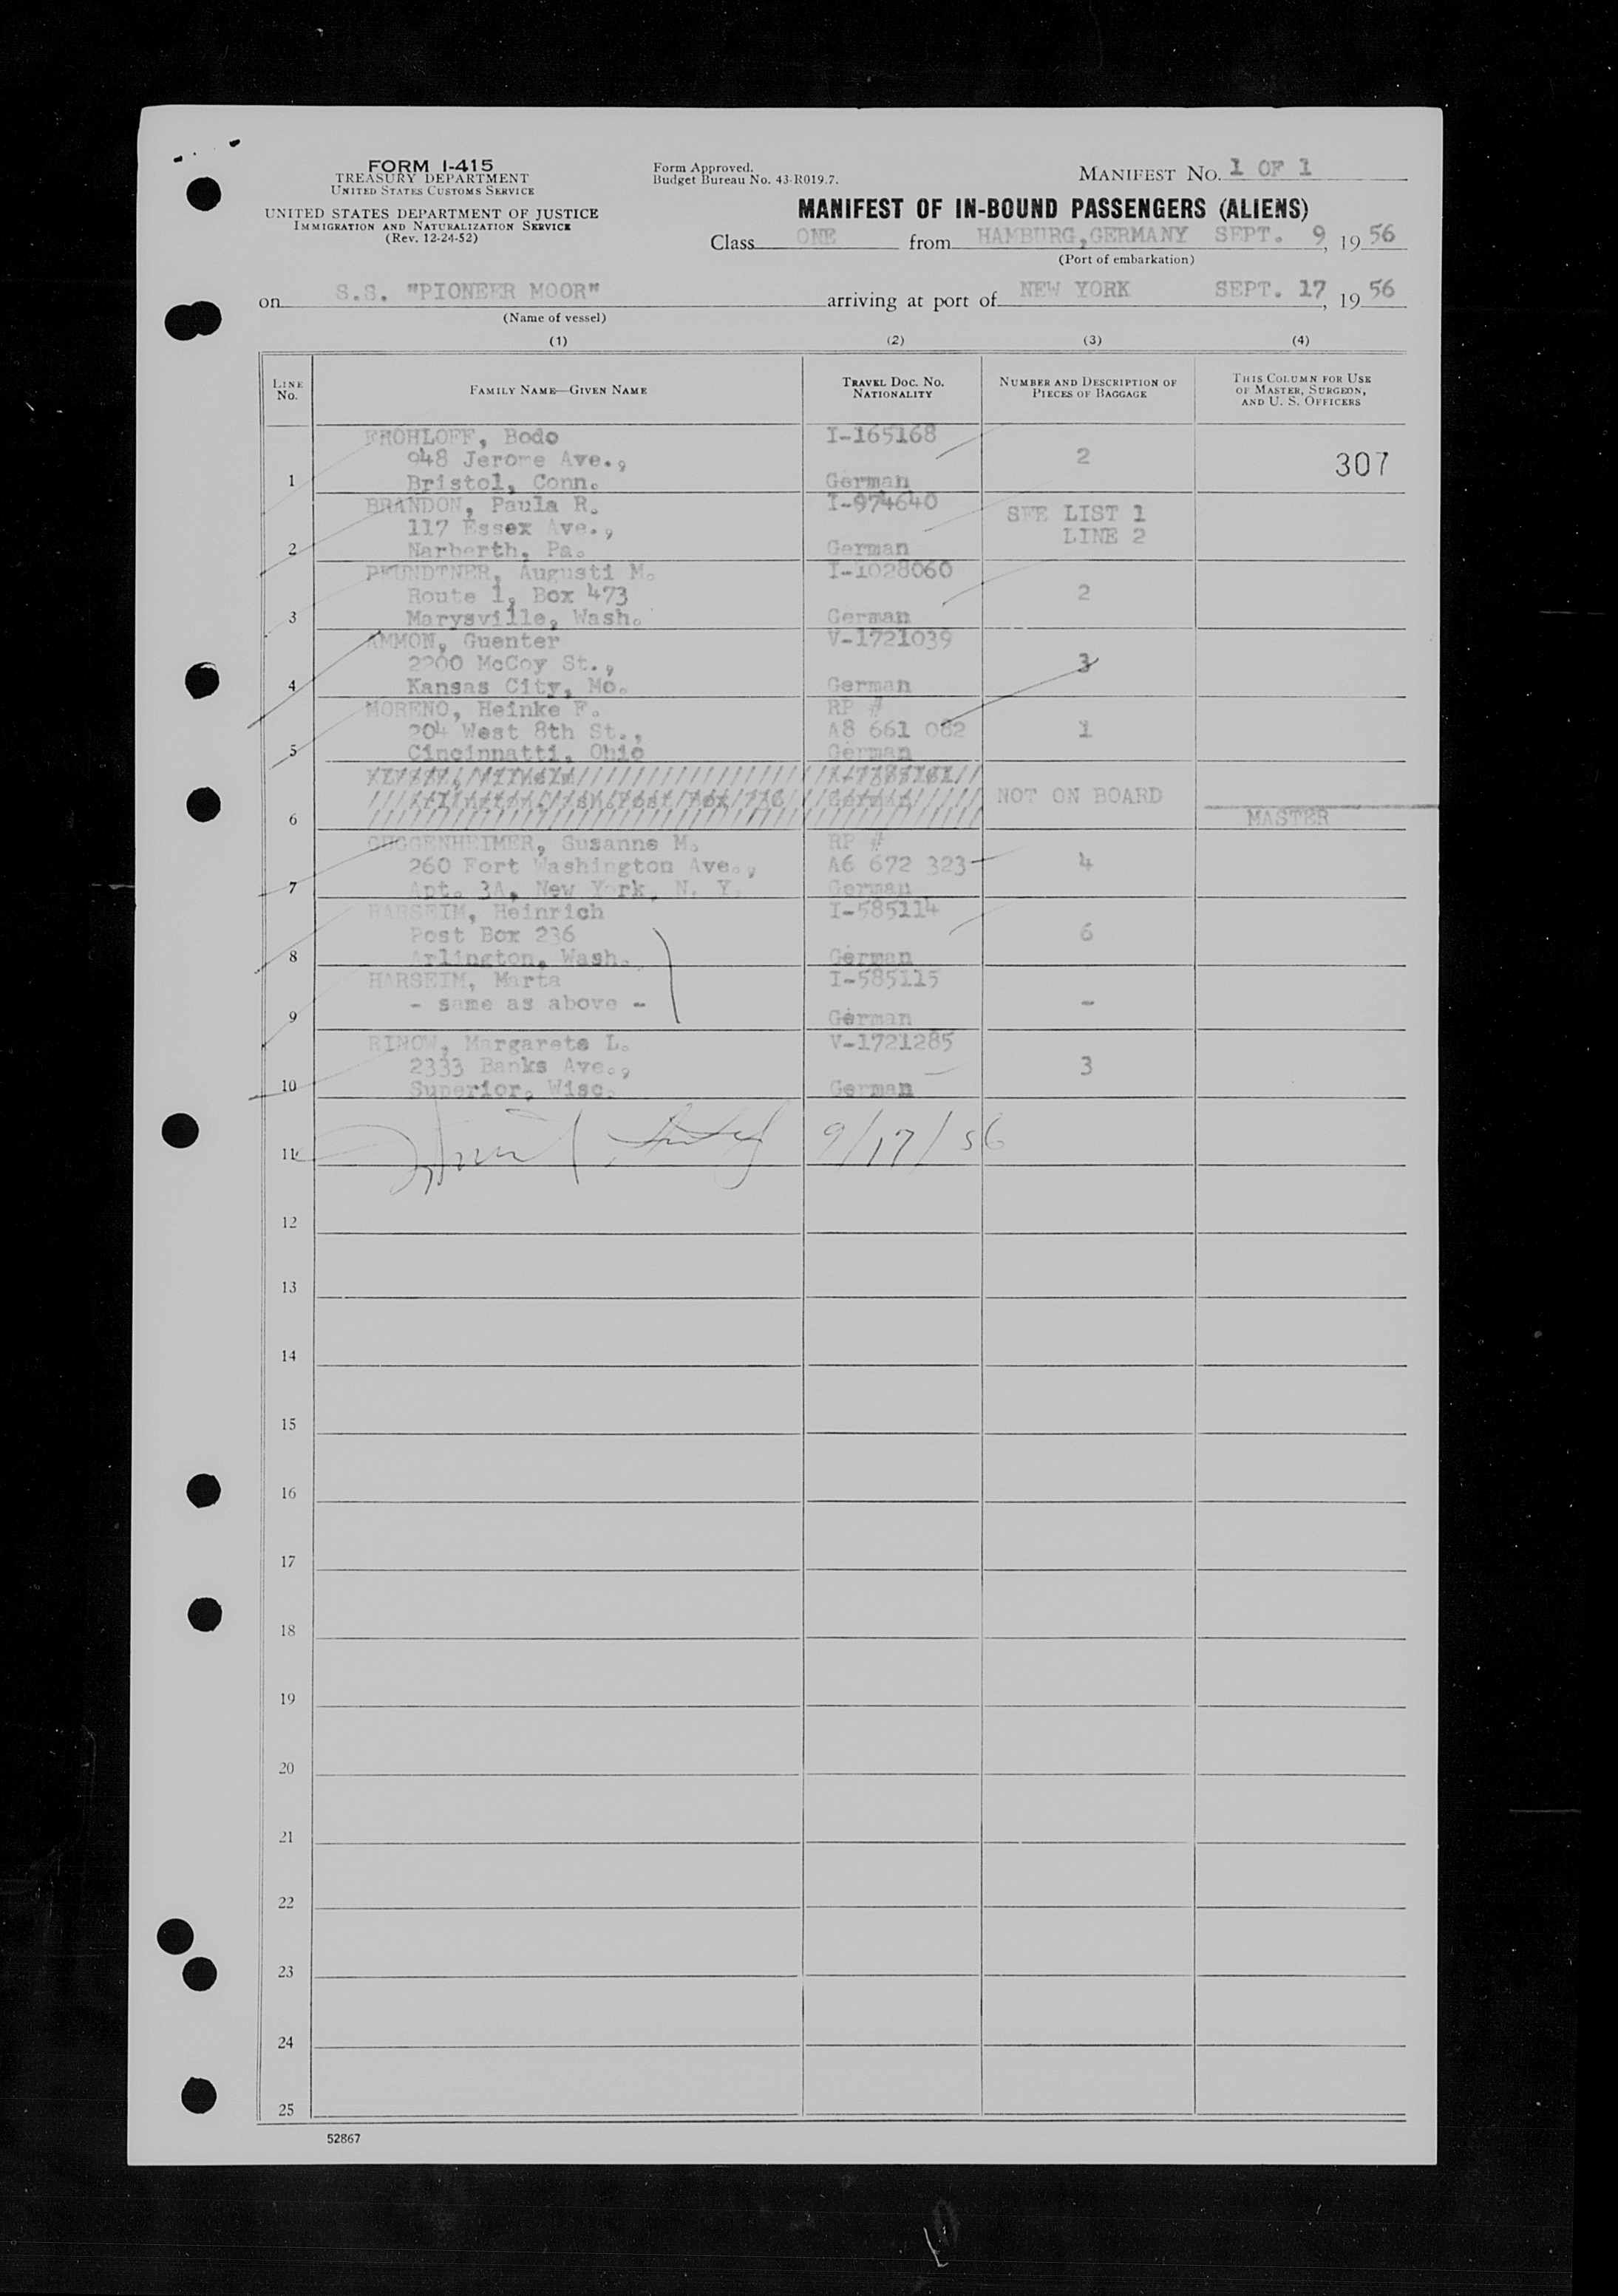 FORM I-415
TREASURY DEPARTMENT
UNITED STATES CUSTOMS SERVICE
UNITED STATES DEPARTMENT OF JUSTICE
IMMIGRATION AND NATURALIZATION SERVICE
(Rev. 12-24-52)
Form Approved.
Budget Bureau No. 43-R019.7.
MANIFEST NO. 1 OF 1
MANIFEST OF IN-BOUND PASSENGERS (ALIENS)
Class ONE from HAMBURG,GERMANY SEPT. 9, 1956
(Port of embarkation)
on S.S. "PIONEER MOOR" arriving at port of NEW YORK SEPT. 17, 1956
(Name of vessel)
(1) (2) (3) (4)
LINE NO. FAMILY NAME—GIVEN NAME TRAVEL DOC. NO. NATIONALITY NUMBER AND DESCRIPTION OF PIECES OF BAGGAGE THIS COLUMN FOR USE OF MASTER, SURGEON, AND U. S. OFFICERS
Bodo I-165168
948 Jerome Ave., 2 307
1 Bristol, Conn. German
BRANDON, Paula R. I-974640
117 Essex Ave., SEE LIST 1
LINE 2
2 Narberth, Pa. German
PFUNDTNER, Augusti M. I-1028060
Route 1, Box 473 2
3 Marysville, Wash. German
AMMON, Guenter V-1721039
2200 McCoy St., 3
4 Kansas City, Mo. German
MORENO, Heinke F. RP #
204 West 8th St., A8 661 062 1
5 Cincinnatti, Ohio German
German NOT ON BOARD
6 MASTER
GUGGENHEIMER, Susanne M. RP #
260 Fort Washington Ave., A6 672 323 4
7 Apt. 3A, New York, N. Y. German
HARSEIM, Heinrich I-585114
Post Box 236 6
8 Arlington, Wash. German
HARSEIM, Marta I-585115
- same as above - -
9 German
Margarete L. V-1721285
2333 Banks Ave., 3
10 Superior, Wisc. German
11 9/17/56
12
13
14
15
16
17
18
19
20
21
22
23
24
25
52867